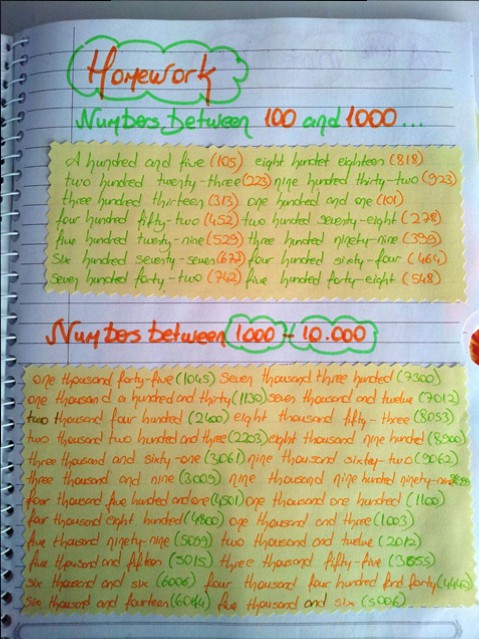 Homework
Numbers between 100 and 1000...
A hundred and five (105) eight hundet eighteen (818)
two hundred twenty-three (223) nine hundred thirty-two (923)
three hundred thirteen (313) one hundred and one (101)
four hundred fifty-two (452) two hundred seventy-eight (278)
five hundred twenty-nine (529) three hundred ninety-nine (399)
six hundred seventy-seven (677) four hundred sixty-four (464)
seven hundred forty-two (742) five hundred forty-eight (548)
Numbers between 1000 - 10.000
one thousand forty-five (1045) seven thousand three hundred (7300)
one thousand a hundred and thirty (1130) seven thousand and twelve (7012)
two thousand four hundred (2400) eight thousand fifty-three (8053)
two thousand two hundred and three (2203) eight thousand nine hundred (8900)
three thousand and sixty-one (3061) nine thousand sixty-two (9062)
three thousand and nine (3009) nine thousand nine hundred ninety-nine
four thousand five hundred and one (4501) one thousand one hundred (1100)
four thousand eight hundred (4800) one thousand and three (1003)
five thousand ninety-nine (5099) two thousand and twelve (2012)
five thousand and fifteen (5015) three thousand fifty-five (3055)
six thousand and six (6006) four thousand four hundred and forty (4440)
six thousand and fourteen (6014) five thousand and six (5006)